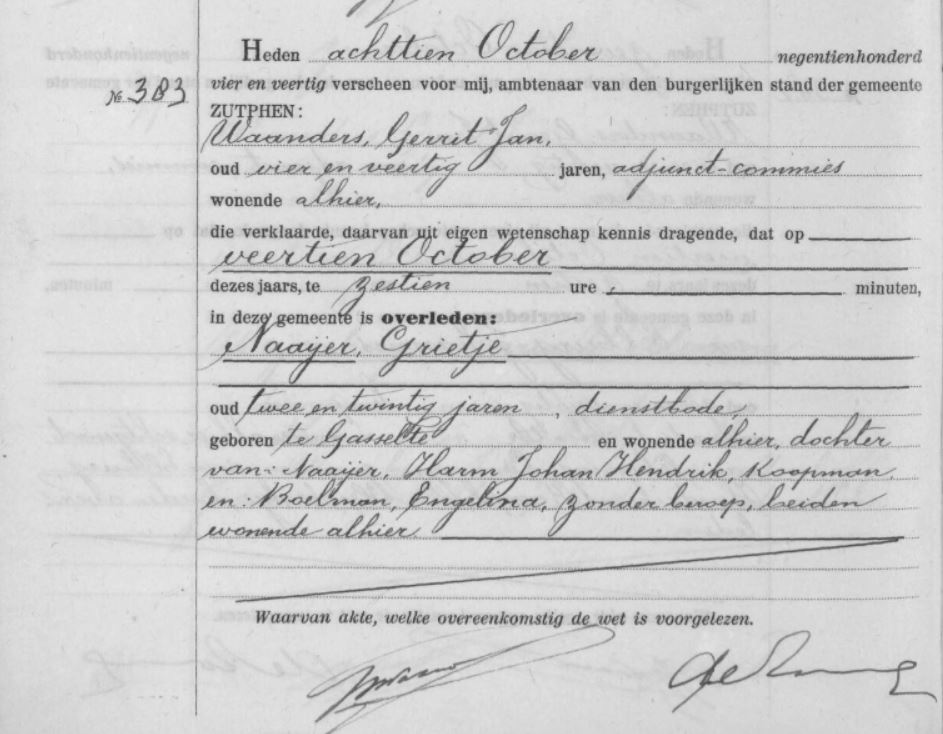 Heden achttien October negentienhonderd
vier en veertig verscheen voor mij, ambtenaar van den burgerlijken stand der gemeente
№ 383
ZUTPHEN:
Waanders, Gerrit Jan,
oud vier en veertig jaren, adjunct-commies
wonende alhier,
die verklaarde, daarvan uit eigen wetenschap kennis dragende, dat op
veertien October
dezes jaars, te zestien ure , minuten,
in deze gemeente is overleden:
Naaijer, Grietje
oud twee en twintig jaren , dienstbode,
geboren te Gasselte en wonende alhier, dochter
van: Naaijer, Harm Johan Hendrik, koopman,
en: Boelman, Engelina, zonder beroep, beiden
wonende alhier.
Waarvan akte, welke overeenkomstig de wet is voorgelezen.